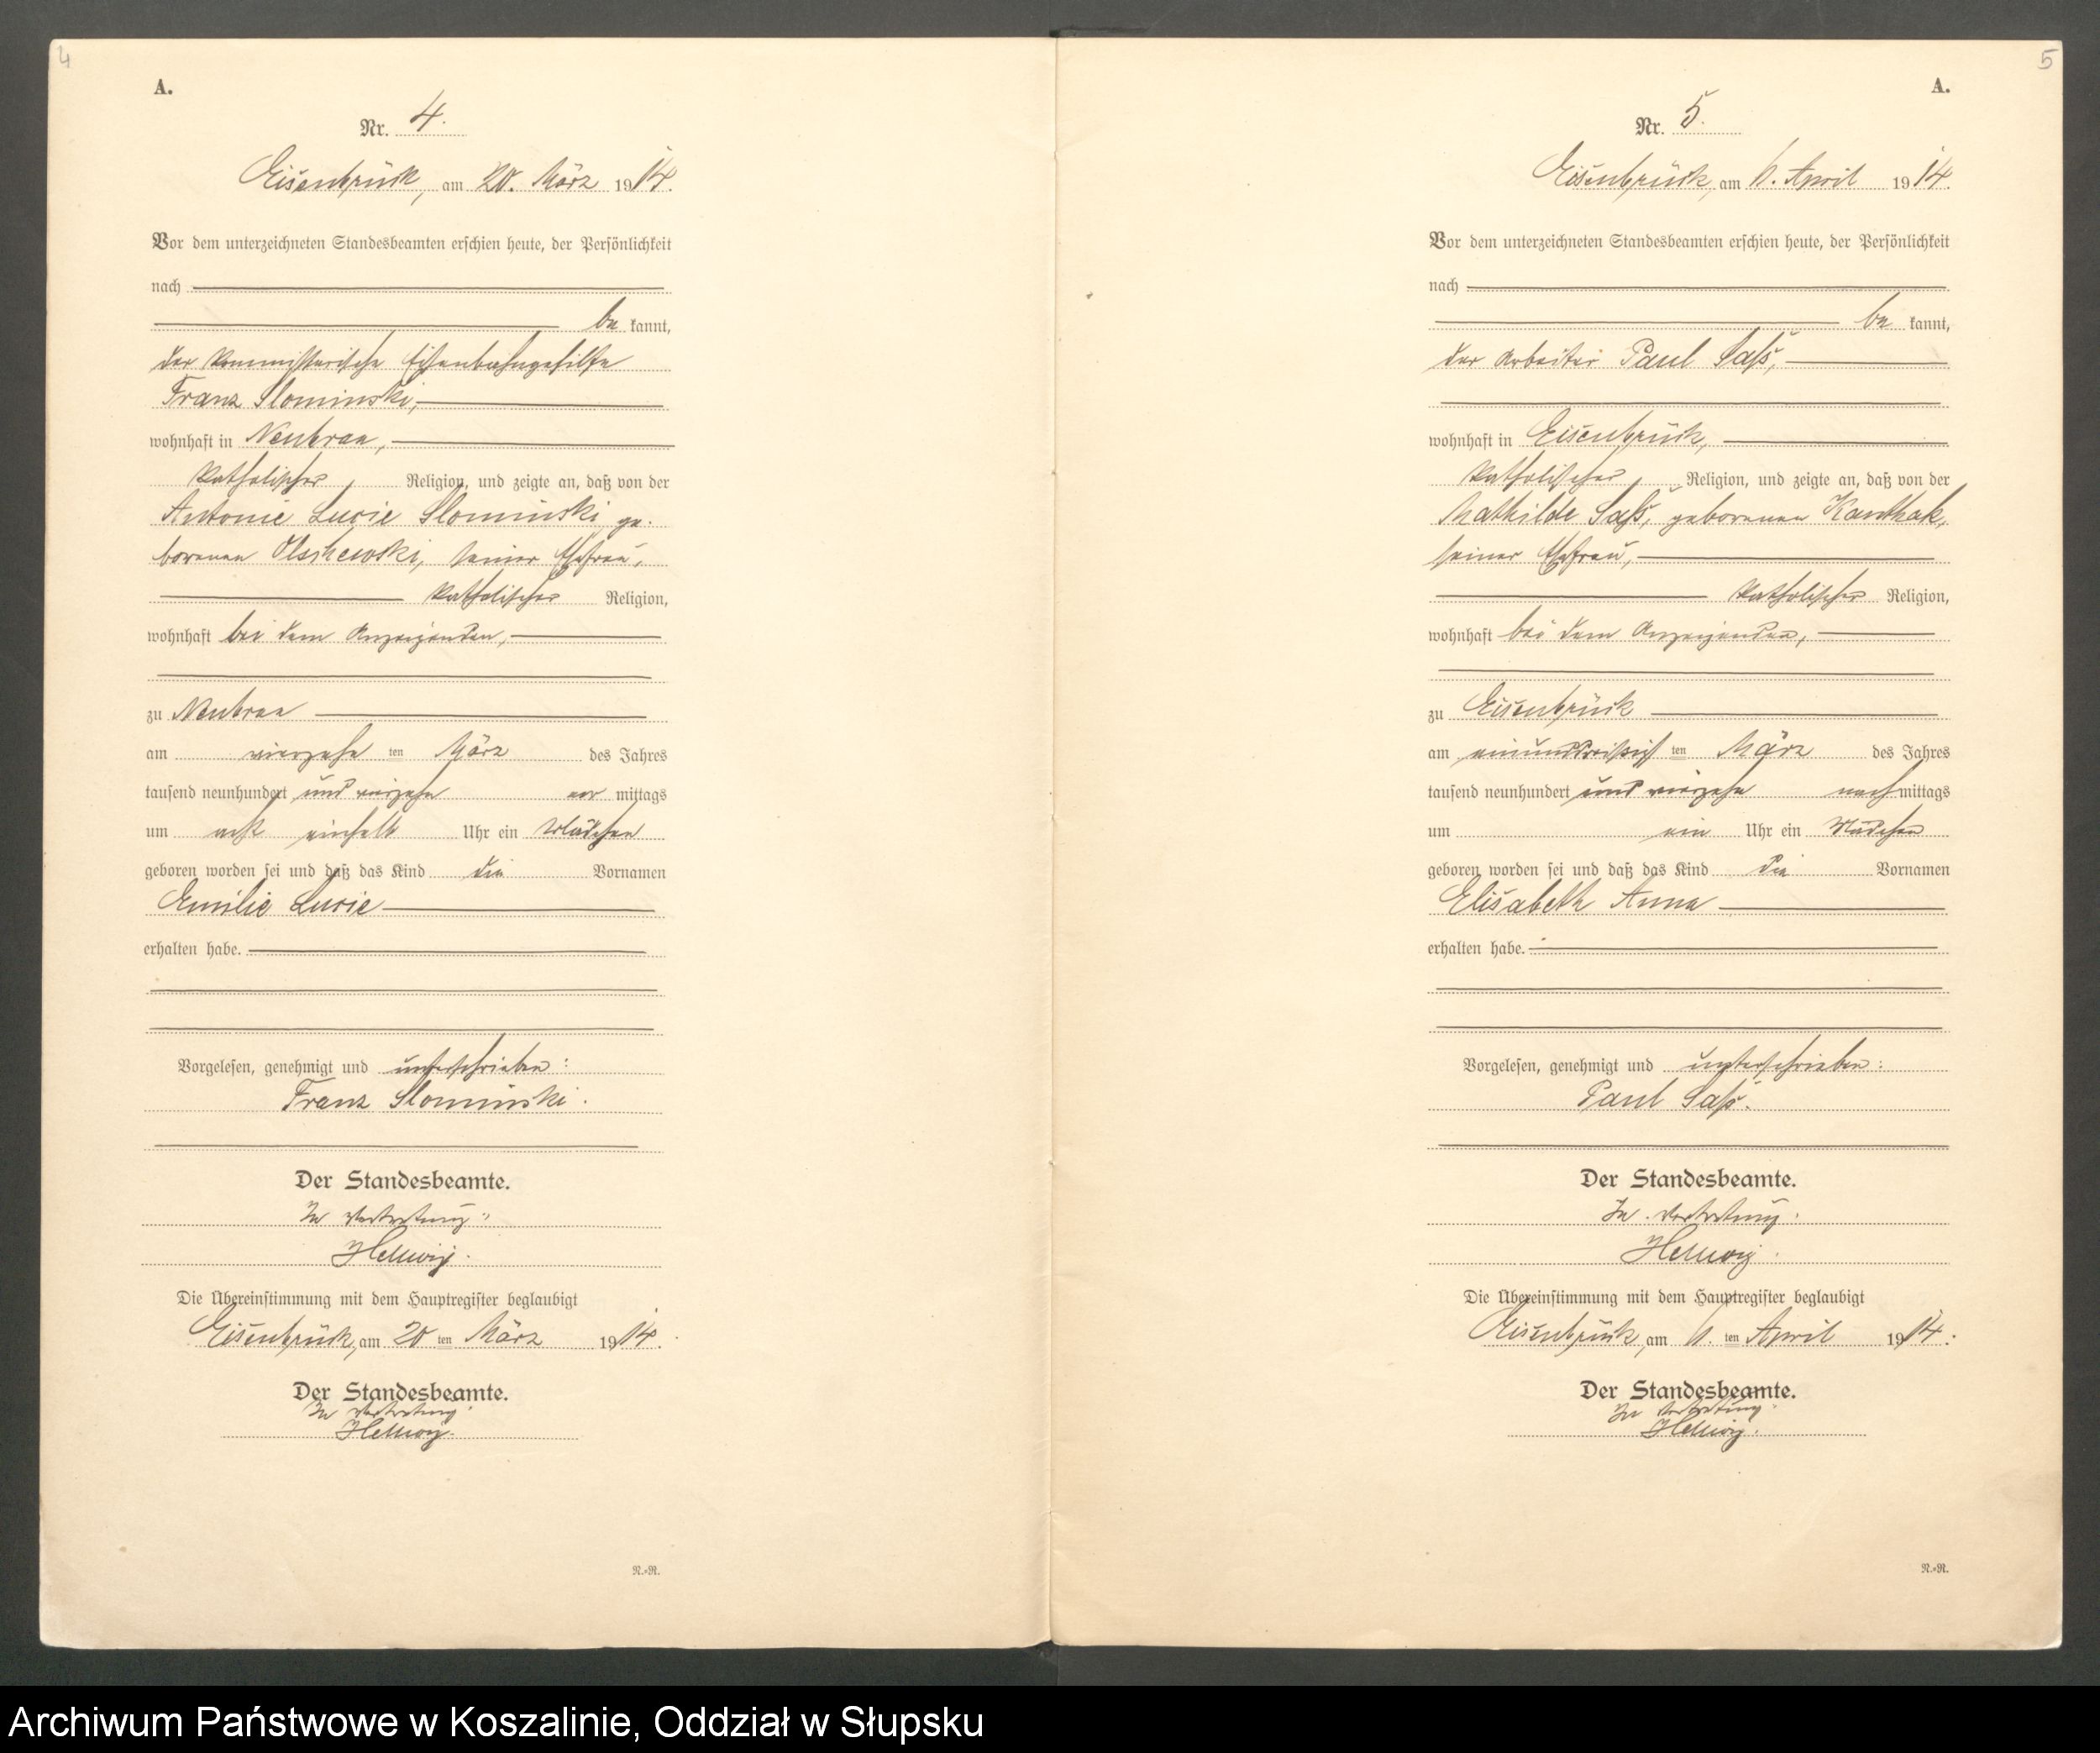 4
A.
Nr. 4.
Eisenbrück, am 20. März 1914.
Vor dem unterzeichneten Standesbeamten erschien heute, der Persönlichkeit
nach
be kannt,
der kommissarische Eisenbahngehilfe
Franz Slominski,
wohnhaft in Neubraa,
katholischer Religion, und zeigte an, daß von der
Antonie Lucie Slominski ge-
borenen Olschewski, seiner Ehefrau,
katholischer Religion,
wohnhaft bei dem Anzeigenden,
zu Neubraa
am vierzehn ten März des Jahres
tausend neunhundert und vierzehn vor mittags
um acht einhalb Uhr ein Mädchen
geboren worden sei und daß das Kind die Vornamen
Emilie Lucie
erhalten habe.
Vorgelesen, genehmigt und unterschrieben:
Franz Slominski.
Der Standesbeamte.
In Vertretung:
Hellwig.
Die Übereinstimmung mit dem Hauptregister beglaubigt
Eisenbrück, am 20 ten März 1914.
Der Standesbeamte.
In Vertretung:
Hellwig.
N.=N.
5
A.
Nr. 5.
Eisenbrück, am April 1914.
Vor dem unterzeichneten Standesbeamten erschien heute, der Persönlichkeit
nach
be kannt,
der Arbeiter Paul Saß,
wohnhaft in Eisenbrück,
katholischer Religion, und zeigte an, daß von der
Mathilde Saß, geborenen Kanthak,
seiner Ehefrau,
katholischer Religion,
wohnhaft bei dem Anzeigenden,
zu Eisenbrück
am einunddreißigs ten März des Jahres
tausend neunhundert und vierzehn nach mittags
um ein Uhr ein Mädchen
geboren worden sei und daß das Kind die Vornamen
Elisabeth Anna
erhalten habe.
Vorgelesen, genehmigt und unterschrieben:
Paul Saß.
Der Standesbeamte.
In Vertretung:
Hellwig.
Die Übereinstimmung mit dem Hauptregister beglaubigt
Eisenbrück, am ten April 1914.
Der Standesbeamte.
In Vertretung:
Hellwig.
N.=N.
Archiwum Państwowe w Koszalinie, Oddział w Słupsku